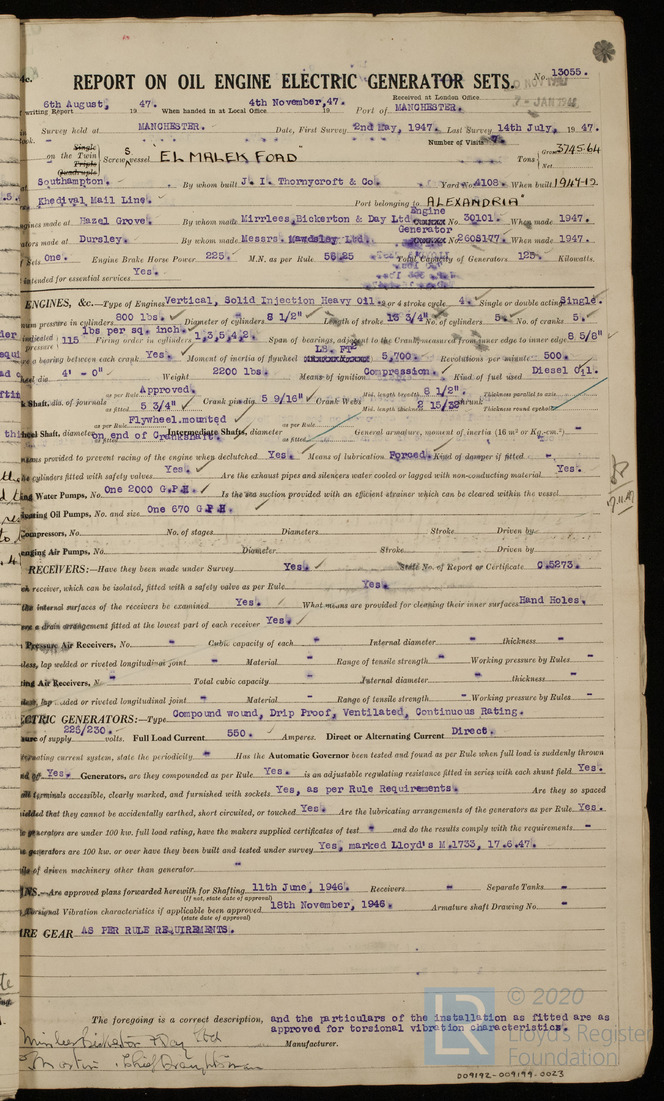 4c.
REPORT ON OIL ENGINE ELECTRIC GENERATOR SETS. No. 13055.
Received at London Office
7 - JAN 194
6th August, 19 47. When handed in at Local Office 4th November, 47. 19 Port of MANCHESTER.
writing Report
Survey held at MANCHESTER. Date, First Survey 2nd May, 1947. Last Survey 14th July, 19 47.
Number of Visits 7.
Single
on the Twin Screw S vessel "EL MALEK FOAD" Tons Gross 3745.64
Triple
Quadruple
Net
at Southampton. By whom built J. I. Thornycroft & Co. Yard No. 4108. When built 1947-12
Khedival Mail Line. Port belonging to ALEXANDRIA"
Engines made at Hazel Grove. By whom made Mirrlees, Bickerton & Day Ltd. Engine No. 30101. When made 1947.
Generators made at Dursley. By whom made Messrs. Mawdsley Ltd. Generator No. 2608177. When made 1947.
Sets One. Engine Brake Horse Power 225. M.N. as per Rule 56.25 Total Capacity of Generators 125 Kilowatts.
intended for essential services Yes.
ENGINES, &c.—Type of Engines Vertical, Solid Injection Heavy Oil. 2 or 4 stroke cycle 4. Single or double acting Single.
um pressure in cylinders 800 lbs. Diameter of cylinders 8 1/2" Length of stroke 13 3/4" No. of cylinders 5. No. of cranks 5.
indicated pressure 115 lbs per sq. inch. Firing order in cylinders 1,3,5,4,2. Span of bearings, adjacent to the Crank, measured from inner edge to inner edge 8 5/8"
re a bearing between each crank Yes. Moment of inertia of flywheel LB. FT² 5,700. Revolutions per minute 500.
heel dia. 4' - 0" Weight 2200 lbs. Means of ignition Compression. Kind of fuel used Diesel Oil.
k Shaft, dia. of journals as per Rule Approved. as fitted 5 3/4" Crank pin dia. 5 9/16" Crank Webs Mid. length breadth 8 1/2". Mid. length thickness 2 15/32" shrunk Thickness parallel to axis Thickness round eyehole
heel Shaft, diameter as per Rule as fitted Flywheel mounted on end of Crankshaft. Intermediate Shafts, diameter as per Rule as fitted General armature, moment of inertia (16 m² or Kg.-cm.²) -
means provided to prevent racing of the engine when declutched Yes. Means of lubrication Forced. Kind of damper if fitted -
he cylinders fitted with safety valves Yes. Are the exhaust pipes and silencers water cooled or lagged with non-conducting material Yes.
ing Water Pumps, No. One 2000 G.P.H. Is the sea suction provided with an efficient strainer which can be cleared within the vessel
icating Oil Pumps, No. and size One 670 G P H
Compressors, No. No. of stages Diameters Stroke Driven by
enging Air Pumps, No. Diameter Stroke Driven by
RECEIVERS:—Have they been made under Survey Yes. State No. of Report or Certificate C.5273.
h receiver, which can be isolated, fitted with a safety valve as per Rule Yes.
the internal surfaces of the receivers be examined Yes. What means are provided for cleaning their inner surfaces Hand Holes.
ere a drain arrangement fitted at the lowest part of each receiver Yes.
Pressure Air Receivers, No. - Cubic capacity of each - Internal diameter - thickness -
less, lap welded or riveted longitudinal joint - Material - Range of tensile strength - Working pressure by Rules -
ting Air Receivers, No. - Total cubic capacity - Internal diameter - thickness -
less, lap welded or riveted longitudinal joint - Material - Range of tensile strength - Working pressure by Rules -
CTRIC GENERATORS:—Type Compound wound, Drip Proof, Ventilated, Continuous Rating.
sure of supply 225/230. volts. Full Load Current 550. Amperes. Direct or Alternating Current Direct.
ernating current system, state the periodicity - Has the Automatic Governor been tested and found as per Rule when full load is suddenly thrown
nd off Yes. Generators, are they compounded as per Rule Yes. is an adjustable regulating resistance fitted in series with each shunt field Yes.
all terminals accessible, clearly marked, and furnished with sockets Yes, as per Rule Requirements. Are they so spaced
ielded that they cannot be accidentally earthed, short circuited, or touched Yes. Are the lubricating arrangements of the generators as per Rule Yes.
e generators are under 100 kw. full load rating, have the makers supplied certificates of test - and do the results comply with the requirements -
e generators are 100 kw. or over have they been built and tested under survey Yes, marked Lloyd's M.1733, 17.6.47.
ils of driven machinery other than generator -
NS.—Are approved plans forwarded herewith for Shafting 11th June, 1946. Receivers - Separate Tanks -
(If not, state date of approval)
Torsional Vibration characteristics if applicable been approved 18th November, 1946. Armature shaft Drawing No. -
(state date of approval)
RE GEAR AS PER RULE REQUIREMENTS.
The foregoing is a correct description, and the particulars of the installation as fitted are as
approved for torsional vibration characteristics.
Mirrlees Bickerton & Day Ltd
Manufacturer.
Chief Draughtsman
© 2020
Lloyd's Register
Foundation
009192-009199-0023